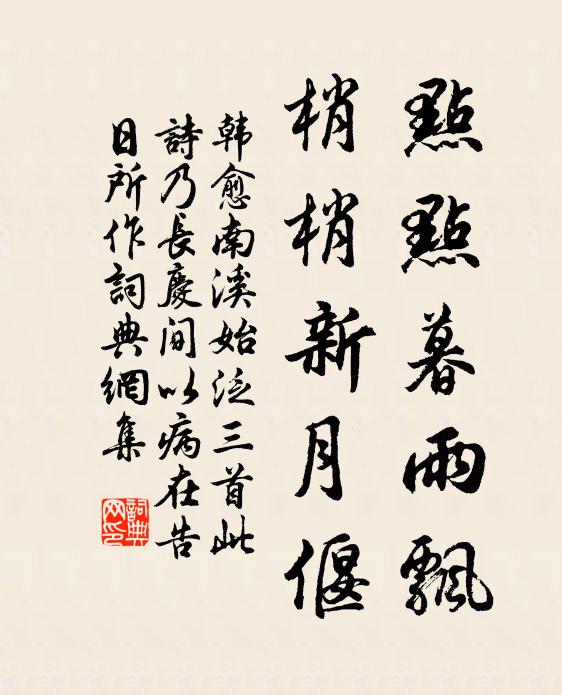 點點暮雨飄
梢梢新月偃
韩愈南溪始泛三首此
詩乃長慶间以病在告
日所作詞典網集
詞典
网印